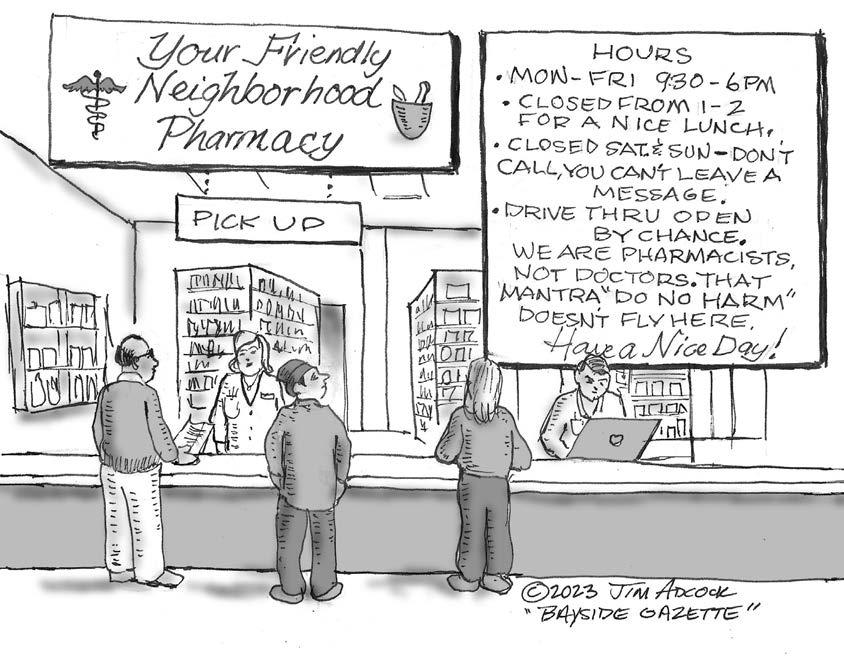 Your Friendly
Neighborhood
Pharmacy
HOURS
• MON - FRI 930 - 6PM
• CLOSED FROM 1 - 2
FOR A NICE LUNCH.
• CLOSED SAT. & SUN - DON'T
CALL, YOU CAN'T LEAVE A
MESSAGE.
• DRIVE THRU OPEN
BY CHANCE.
WE ARE PHARMACISTS,
NOT DOCTORS. THAT
MANTRA "DO NO HARM"
DOESN'T FLY HERE.
Have a Nice Day!
PICK UP
©2023 JIM ADCOCK
"BAYSIDE GAZETTE"